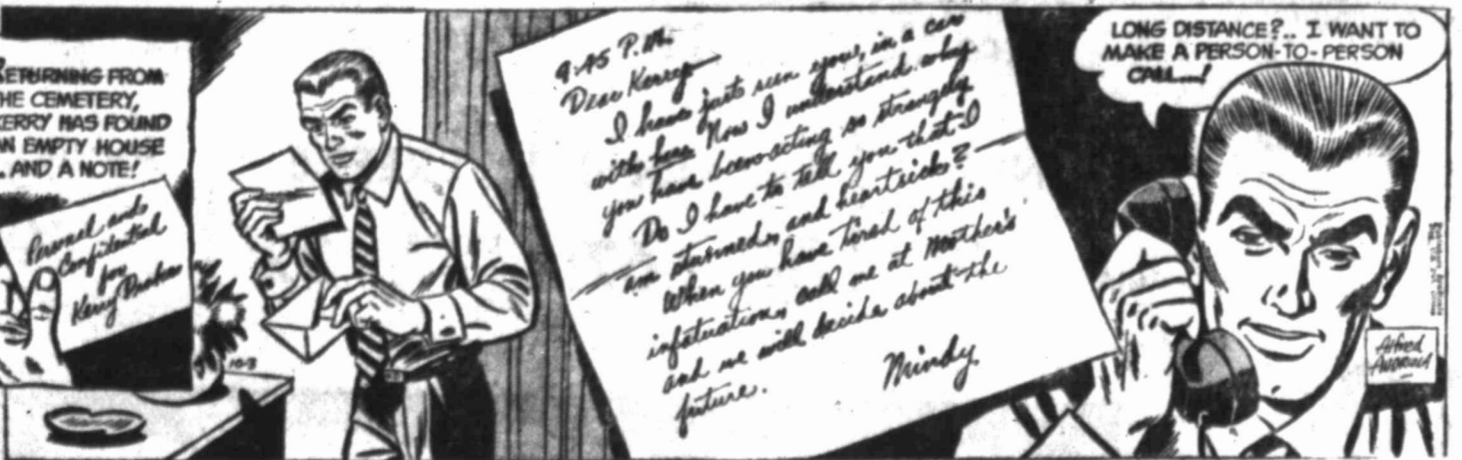 RETURNING FROM
THE CEMETERY,
KERRY HAS FOUND
AN EMPTY HOUSE
... AND A NOTE!
Personal and
Confidential
for
Kerry Drake
10-3
9:45 P.M.
Dear Kerry—
I have just seen you, in a car
with her. Now I understand why
you have been acting so strangely.
Do I have to tell you that I
am stunned and heartsick?—
When you have tired of this
infatuation, call me at Mother's
and we will decide about the
future.
Mindy
LONG DISTANCE?.. I WANT TO
MAKE A PERSON-TO-PERSON
CALL...!
Alfred
Andriola